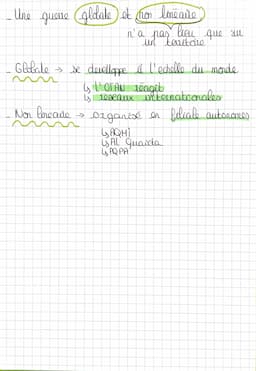 - Une guerre globale et non linéaire
n'a pas lieu que sur
un territoire
- Globale → se développe à l'échelle du monde
↳ l'OTAN réagit
↳ réseaux internationales
- Non linéaire → organisé en filiale autonomes
↳ AQMI
↳ AL Quaida
↳ AQPA